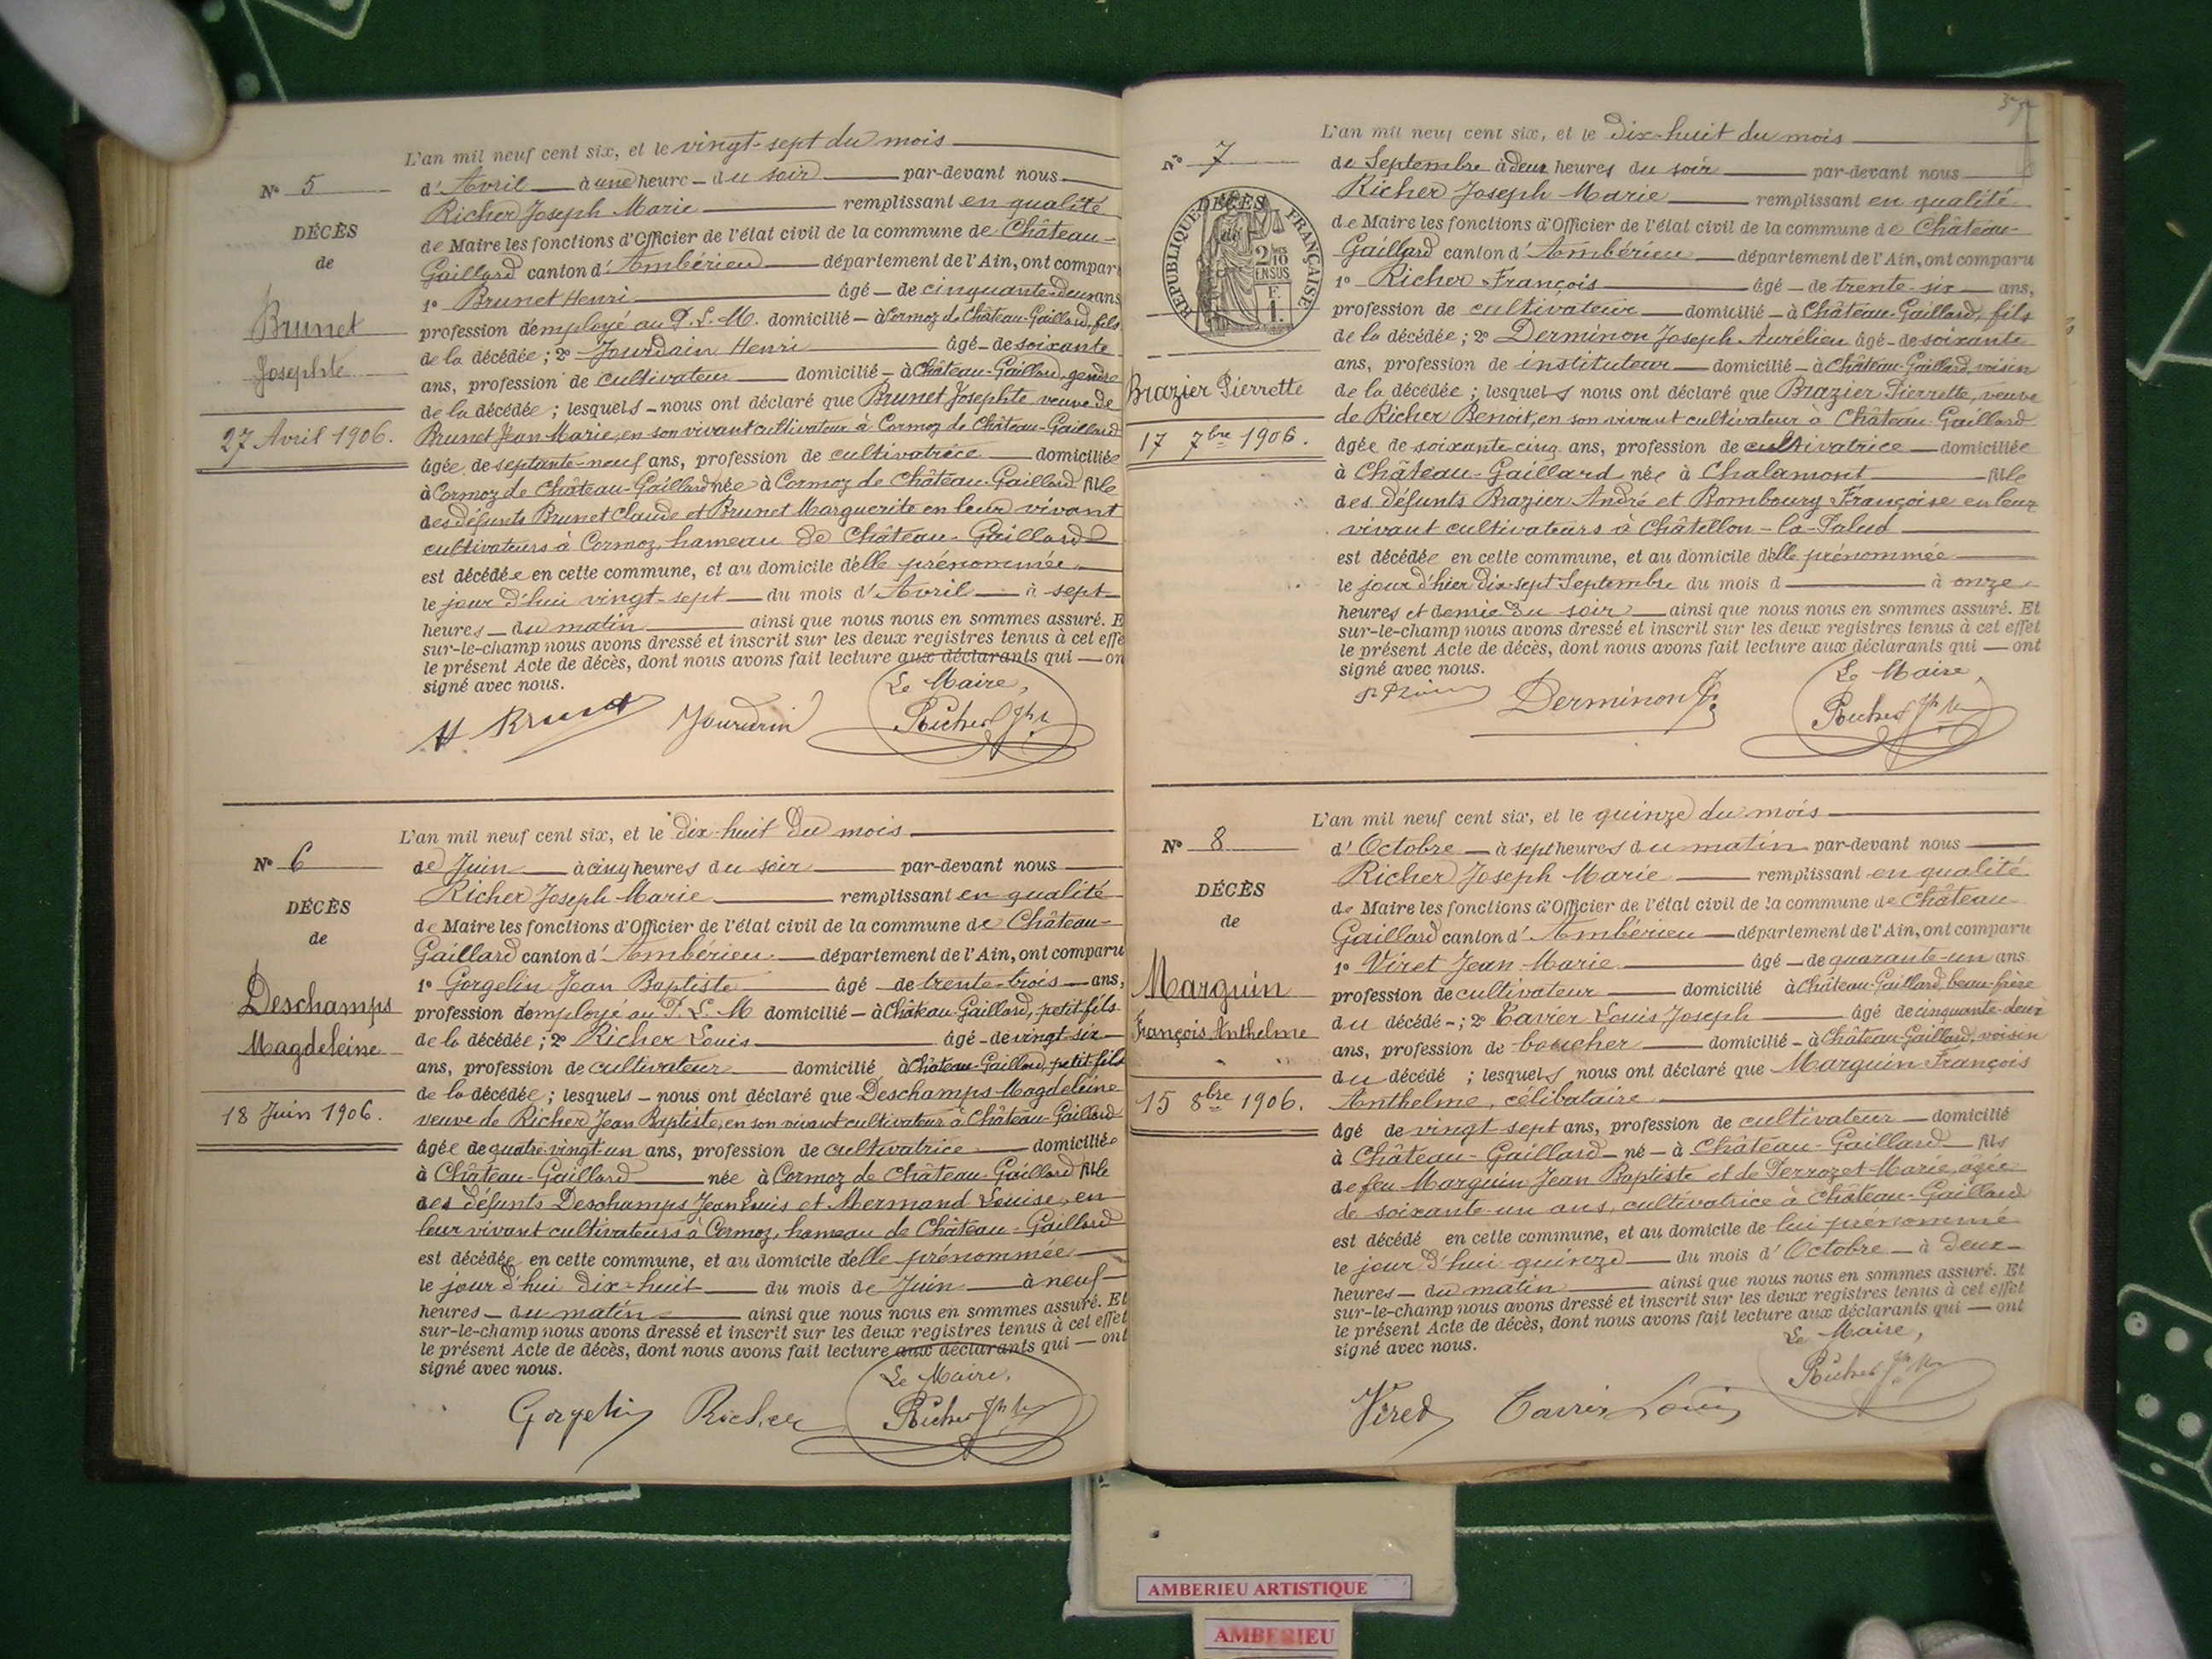 L'an mil neuf cent six, et le vingt-sept du mois
N° 5
d'Avril à une heure du soir par-devant nous
Richer Joseph Marie remplissant en qualité
DÉCÈS
de Maire les fonctions d'Officier de l'état civil de la commune de Château-
de
Gaillard canton d'Ambérieu département de l'Ain, ont compar
1° Brunet Henri âgé de cinquante-deux ans
Brunet
profession d'employé au P. L. M. domicilié à Cormoz de Château-Gaillard, fils
de la décédée ; 2° Jourdain Henri âgé de soixante
Josephte
ans, profession de cultivateur domicilié à Château-Gaillard, gendre
de la décédée ; lesquels nous ont déclaré que Brunet Josephte veuve de
27 Avril 1906.
Brunet Jean Marie, en son vivant cultivateur à Cormoz de Château-Gaillard
âgée de septante-neuf ans, profession de cultivatrice domiciliée
à Cormoz de Château-Gaillard née à Cormoz de Château-Gaillard fille
des défunts Brunet Claude et Brunet Marguerite en leur vivant
cultivateurs à Cormoz, hameau de Château-Gaillard
est décédée en cette commune, et au domicile d'elle prénommée
le jour d'hui vingt-sept du mois d'Avril à sept
heures du matin ainsi que nous nous en sommes assuré. E
sur-le-champ nous avons dressé et inscrit sur les deux registres tenus à cet effe
le présent Acte de décès, dont nous avons fait lecture aux déclarants qui on
signé avec nous.
Le Maire,
H Brunet Jourdain Richer Jh M
L'an mil neuf cent six, et le dix-huit du mois
N° 6
de Juin à cinq heures du soir par-devant nous
Richer Joseph Marie remplissant en qualité
DÉCÈS
de Maire les fonctions d'Officier de l'état civil de la commune de Château-
de
Gaillard canton d'Ambérieu département de l'Ain, ont comparu
1° Gorgelin Jean Baptiste âgé de trente-trois ans,
Deschamps
profession d'employé au P. L. M domicilié à Château-Gaillard, petit-fils
de la décédée ; 2° Richer Louis âgé de vingt-six
Magdeleine
ans, profession de cultivateur domicilié à Château-Gaillard, petit-fils
de la décédée ; lesquels nous ont déclaré que Deschamps Magdeleine
18 Juin 1906.
veuve de Richer Jean Baptiste, en son vivant cultivateur à Château-Gaillard
âgée de quatre-vingt-un ans, profession de cultivatrice domiciliée
à Château-Gaillard née à Cormoz de Château-Gaillard fille
des défunts Deschamps Jean Louis et Mermand Louise, en
leur vivant cultivateurs à Cormoz, hameau de Château-Gaillard
est décédée en cette commune, et au domicile d'elle prénommée
le jour d'hui dix-huit du mois de Juin à neuf
heures du matin ainsi que nous nous en sommes assuré. Et
sur-le-champ nous avons dressé et inscrit sur les deux registres tenus à cet effet
le présent Acte de décès, dont nous avons fait lecture aux déclarants qui ont
signé avec nous.
Le Maire,
Gorgelin Richer Richer Jh M
L'an mil neuf cent six, et le dix-huit du mois
N° 7
de Septembre à deux heures du soir par-devant nous
Richer Joseph Marie remplissant en qualité
RÉPUBLIQUE FRANÇAISE
DÉCÈS
de
2/10
EN SUS
F.
1.
de Maire les fonctions d'Officier de l'état civil de la commune de Château-
Gaillard canton d'Ambérieu département de l'Ain, ont comparu
1° Richer François âgé de trente-six ans,
profession de cultivateur domicilié à Château-Gaillard, fils
de la décédée ; 2° Derminon Joseph Aurélien âgé de soixante
ans, profession de instituteur domicilié à Château-Gaillard, voisin
Brazier Pierrette
de la décédée ; lesquels nous ont déclaré que Brazier Pierrette, veuve
de Richer Benoit, en son vivant cultivateur à Château-Gaillard
17 7bre 1906.
âgée de soixante-cinq ans, profession de cultivatrice domiciliée
à Château-Gaillard née à Chalamont fille
des défunts Brazier André et Bombourg Françoise en leur
vivant cultivateurs à Châtillon-la-Palud
est décédée en cette commune, et au domicile d'elle prénommée
le jour d'hier dix-sept Septembre du mois d à onze
heures et demie du soir ainsi que nous nous en sommes assuré. Et
sur-le-champ nous avons dressé et inscrit sur les deux registres tenus à cet effet
le présent Acte de décès, dont nous avons fait lecture aux déclarants qui ont
signé avec nous.
Le Maire,
Derminon Richer Jh M
L'an mil neuf cent six, et le quinze du mois
N° 8
d'Octobre à sept heures du matin par-devant nous
Richer Joseph Marie remplissant en qualité
DÉCÈS
de Maire les fonctions d'Officier de l'état civil de la commune de Château-
de
Gaillard canton d'Ambérieu département de l'Ain, ont comparu
1° Viret Jean-Marie âgé de quarante-un ans
Marguin
profession de cultivateur domicilié à Château-Gaillard, beau-frère
du décédé ; 2° Tavier Louis Joseph âgé de cinquante-deux
François Anthelme
ans, profession de boucher domicilié à Château-Gaillard, voisin
du décédé ; lesquels nous ont déclaré que Marguin François
15 8bre 1906.
Anthelme, célibataire
âgé de vingt-sept ans, profession de cultivateur domicilié
à Château-Gaillard né à Château-Gaillard fils
de feu Marguin Jean Baptiste et de Perrozet Marie, âgée
de soixante-un ans, cultivatrice à Château-Gaillard
est décédé en cette commune, et au domicile de lui prénommé
le jour d'hui quinze du mois d'Octobre à deux
heures du matin ainsi que nous nous en sommes assuré. Et
sur-le-champ nous avons dressé et inscrit sur les deux registres tenus à cet effet
le présent Acte de décès, dont nous avons fait lecture aux déclarants qui ont
signé avec nous.
Le Maire,
Viret Tavier Louis Richer Jh M
AMBERIEU ARTISTIQUE
AMBERIEU